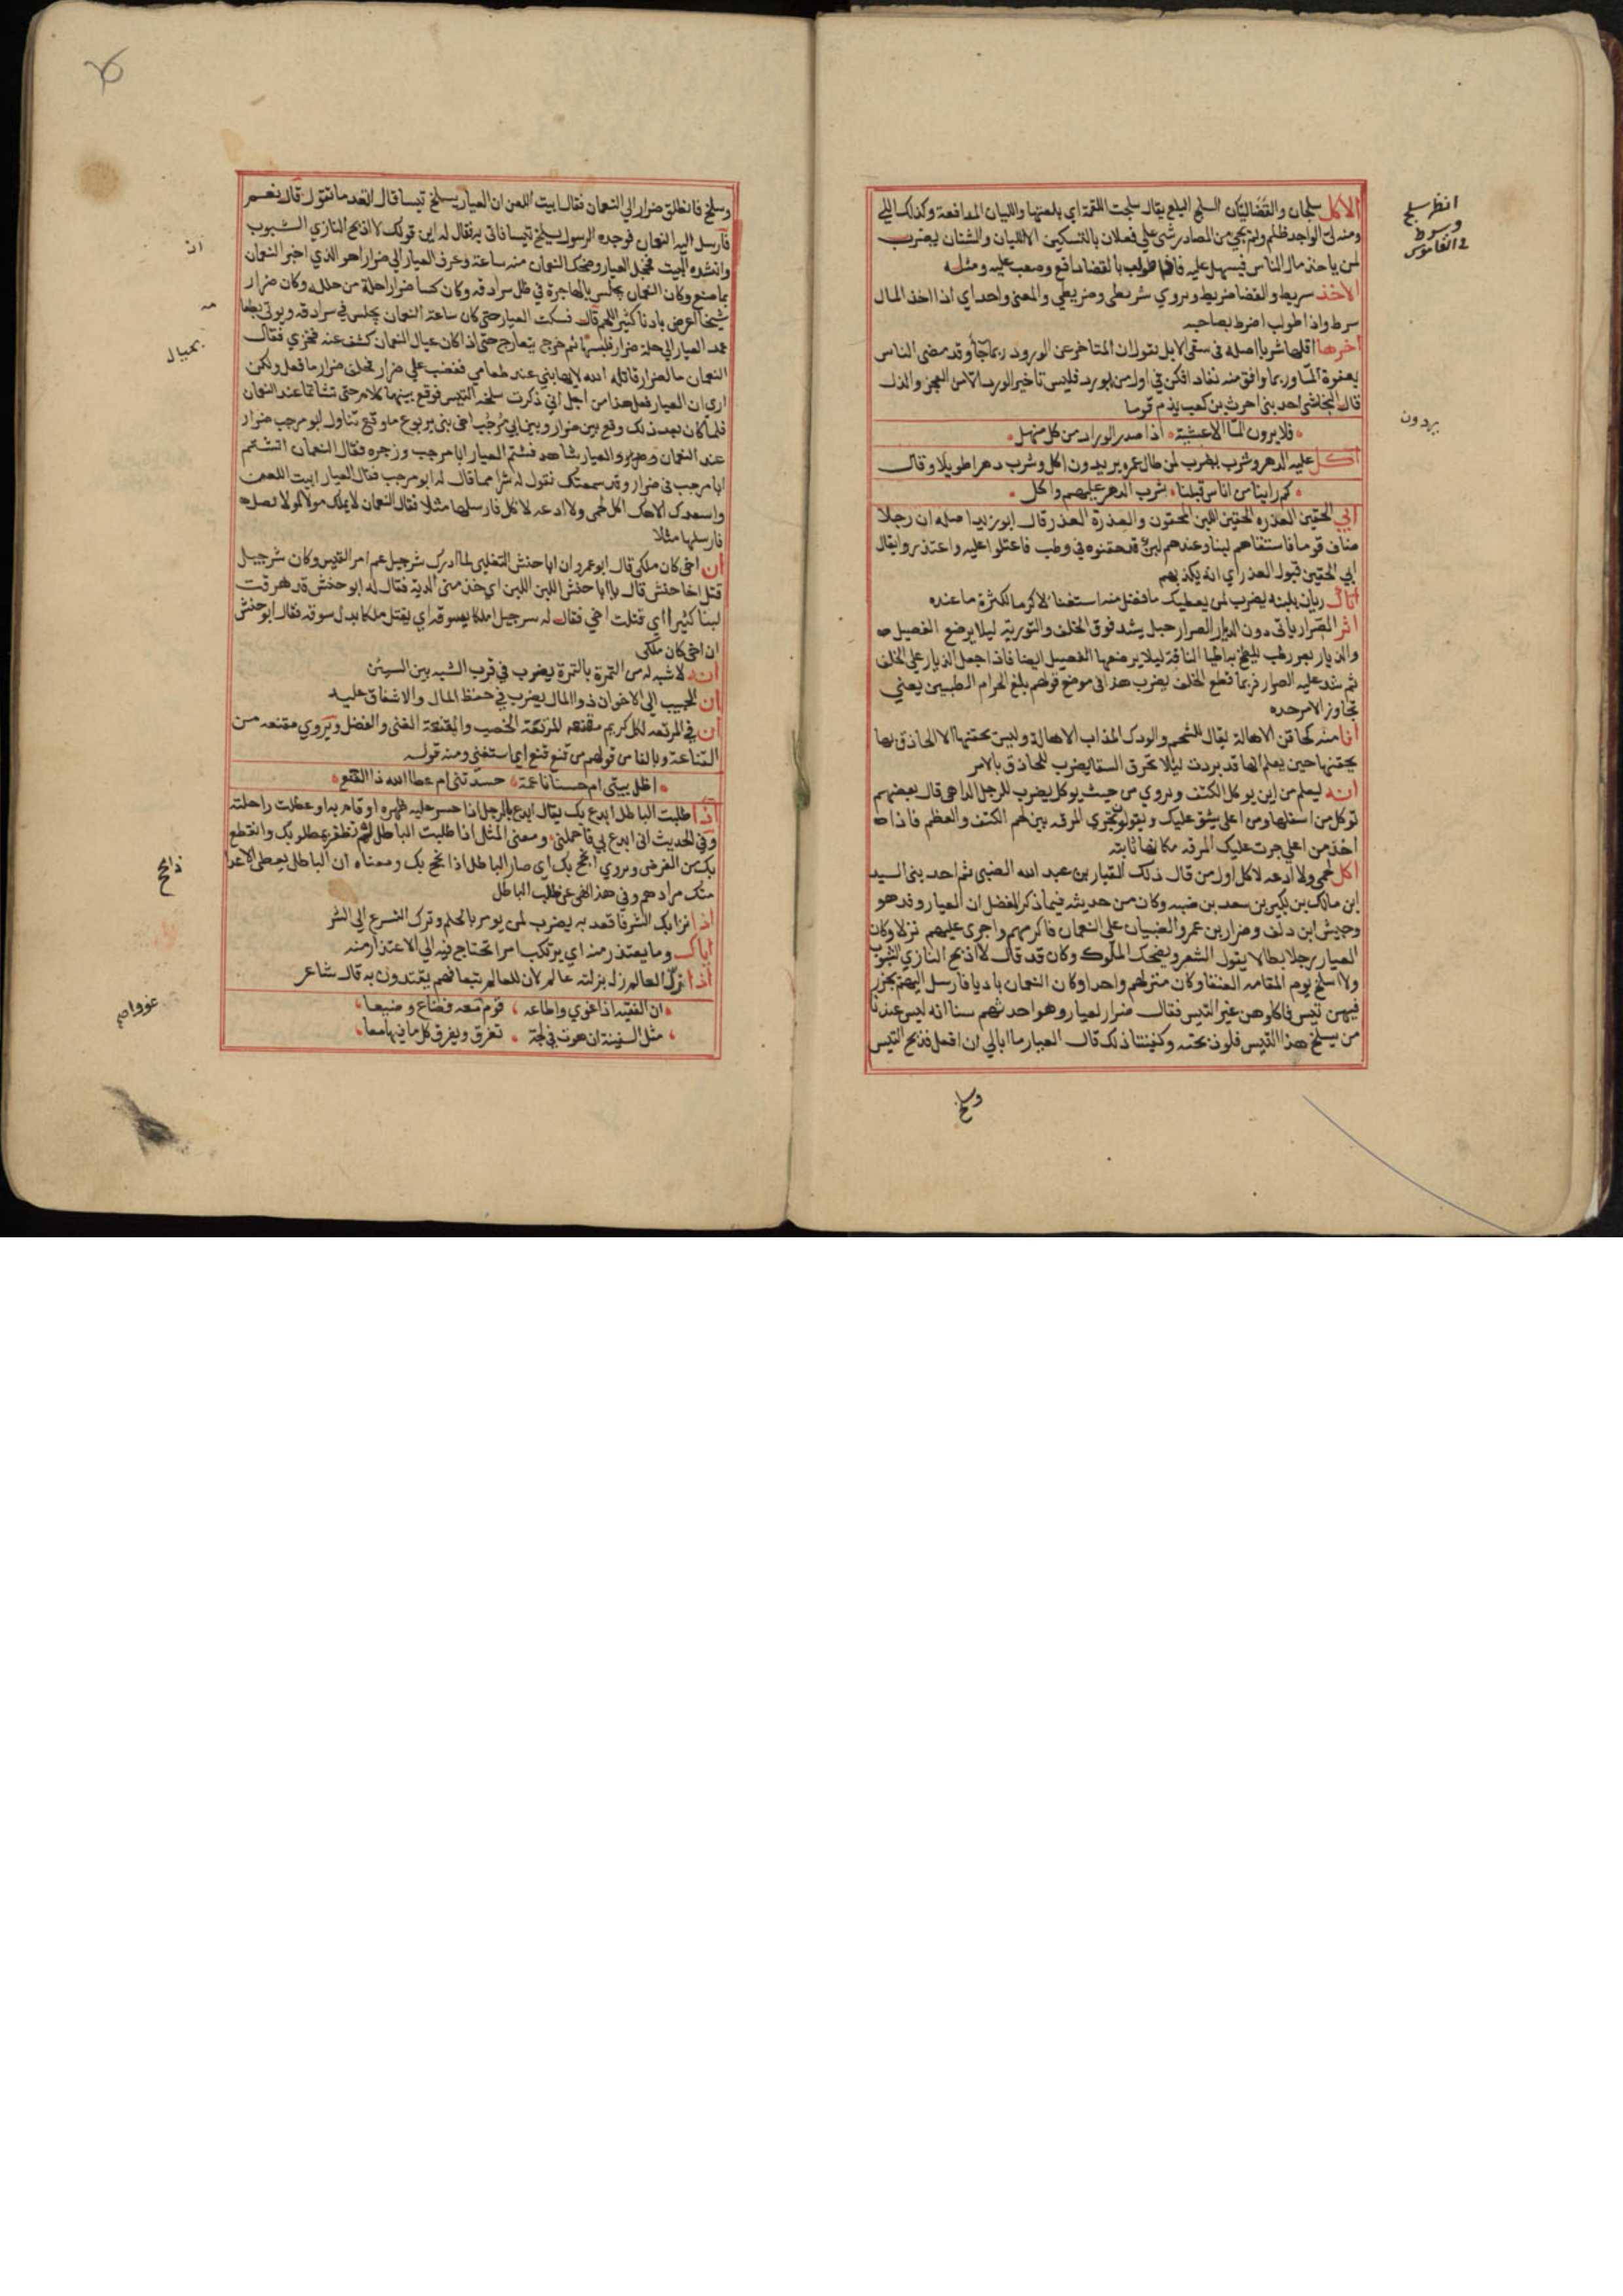 الاكل سلجان والقضاليّان السلج البلع يقال سلجت اللقمة اي بلعتها والليان المدافعة وكذلك اللي
ومنه لي الواجد ظلم ولم يجي من المصادر شي علي فعلان بالتسكين الا الليان والشنان يضرب
لمن ياخذ مال الناس فيسهل عليه فاذا طولب بالقضا دافع وصعب عليه ومثله
الاخذ سريط والقضا ضريط ويروي سريطي وضريطي والمعني واحد اي اذا اخذ المال
سرط واذا طولب اضرط بصاحبه
اخرها اقلها شربا اصله في سقي الابل نقول ان المتاخر عن الورود ربما جا وقد مضي الناس
بعفوة الما وربما وافق منه نفادا فكن في اول من يورد فليس تاخير الورد الا من العجز والذل
قال النجاشي احد بني الحرث بن كعب يذم قوما
فلا يردون الما الا عشية اذا صدر الوراد من كل منهل
اكل عليه الدهر وشرب يضرب لمن طال عمره يريدون اكل وشرب دهرا طويلا وقال
كم راينا من اناس قبلنا شرب الدهر عليهم واكل
ابي الحقين العذره الحقين اللبن المحقون والعذرة العذر قال ابو زيد اصله ان رجلا
ضاف قوما فاستقاهم لبنا وعندهم لبن قد حقنوه في وطب فاعتلوا عليه واعتذروا فقال
ابي الحقين قبول العذر اي انه يكذبهم
اتاك ريان بلبنه يضرب لمن يعطيك ما فضل منه استغنا لا كرما لكثرة ما عنده
اثر الصرار ياتي دون الذيار الصرار حبل يشد فوق الخلف والتورية ليلا يرضع الفصيل
والذيار بعر رطب يلطخ به اطبا الناقة ليلا يرضعها الفصيل ايضا فاذا جعل الذيار علي الخلف
ثم شد عليه الصرار فربما قطع الخلف يضرب هذا في موضع قولهم بلغ الحزام الطبيين يعني
تجاوز الامر حده
انا منه كحاقن الاهالة يقال للشحم والودك المذاب الاهالة وليس يحقنها الا الحاذق بها
يحقنها حين يعلم انها قد بردت ليلا تحرق السقا يضرب للحاذق بالامر
انه ليعلم من اين يوكل الكتف ويروي من حيث يوكل يضرب للرجل الداهي قال بعضهم
توكل من اسفلها ومن اعلي يشق عليك ويقولون تجري المرقه بين لحم الكتف والعظم فاذا
اخذ من اعلي جرت عليك المرقه مكانها ثابته
اكل لحمي ولا ادعه لاكل اول من قال ذلك العيار بن عبد الله الضبي ثم احد بني السيد
ابن مالك بن بكير بن سعد بن ضبه وكان من حديثه فيما ذكر المفضل ان العيار وفد هو
وحبيش ابن دلف وضرار بن عمرو الضبيان علي النعمان فاكرمهم واجري عليهم نزلا وكان
العيار رجلا بطالا يقول الشعر ويضحك الملوك وكان قد قال لا اذبح النازي الشبوب
ولا اسلخ يوم المقامه العنقا وكان منزلهم واحدا وكان النعمان باديا فارسل اليهم بجزر
فيهن تيس فاكلوهن غير التيس فقال ضرار لعيار وهو احدثهم سنا انه ليس عندنا
من يسلخ هذا التيس فلو ذبحته وكفيتنا ذلك قال العيار ما ابالي ان افعل فذبح التيس
وسلخ
انظر سلج
وسرط
في القاموس
يردون
وسلخ فانطلق ضرار الي النعمان فقال ابيت اللعن ان العيار يسلخ تيسا قال ابعد ما تقول قال نعم
فارسل اليه النعمان فوجده الرسول يسلخ تيسا فاتي به فقال له اين قولك لا اذبح النازي الشبوب
وانشده البيت فخجل العيار وضحك النعمان منه ساعة وعرف العيار الي ضرارا هو الذي اخبر النعمان
بما صنع وكان النعمان يجلس بالهاجرة في ظل سرادقه وكان كسا ضرارا حلة من حلله وكان ضرار
شيخا اعرض بادنا كثير اللحم قال فسكت العيار حتي كان ساعة النعمان يجلس في سرادقه ويوتي بطعامه
عمد العيار الي حلة ضرار فلبسها ثم خرج يتعارج حتي اذا كان عيال النعمان كشف عنه فخري فقال
النعمان ما لضرار قاتله الله لا يهابني عند طعامي فغضب علي ضرار فحلف ضرار ما فعل ولكن
اري ان العيار فعل هذا من اجل اني ذكرت سلخه التيس فوقع بينهما كلام حتي تشاتما عند النعمان
فلما كان بعد ذلك وقع بين ضرار وبين ابي مرحب اخي بني يربوع ما وقع تناول ابو مرحب ضرار
عند النعمان والعيار شاهد فشتم العيار ابا مرحب وزجره فقال النعمان اتشتم
ابا مرحب في ضرار وقد سمعتك تقول له شرا مما قال له ابو مرحب فقال العيار ابيت اللعن
واسعدك الاهك اكل لحمي ولا ادعه لاكل فارسلها مثلا فقال النعمان لا يملك مولا لمولا نصرا
فارسلها مثلا
ان اخي كان ملكي قال ابو عمرو ان ابا حنش التغلبي لما ادرك شرحبيل عم امر القيس وكان شرحبيل
قتل اخا حنش قال يا ابا حنش اللبن اللبن اي خذ مني الدية فقال له ابو حنش قد هرقت
لبنا كثيرا اي قتلت اخي فقال له شرحبيل املكا بسوقه اي يقتل ملكا بدل سوقه فقال ابو حنش
ان اخي كان ملكي
انه لاشبه به من التمرة بالتمرة يضرب في قرب الشبه بين الشيئن
ان الحبيب الي الاخوان ذو المال يضرب في حفظ المال والاشفاق عليه
ان في المرتعه لكل كريم مقنعه المرتعة الخصب والمقنعة الغني والفضل ويروي مقنعه من
القناعة وبالفا من قولهم من قنع فنع اي استغني ومنه قوله
اظل بيتي ام حسنا ناعمة حسدتني ام عطا الله ذا الفنع
اذا طلبت الباطل ابدع بك يقال ابدع بالرجل اذا حسر عليه ظهره او قام به او عطلت راحلته
وفي الحديث اني ابدع بي فاحملني ومعني المثل اذا طلبت الباطل لم تظفر بمطلوبك وانقطع
بك عن الغرض ويروي انجح بك اي صار الباطل اذا نجح بك ومعناه ان الباطل يعطي الاعدا
منك مرادهم وفي هذا نهي عن طلب الباطل
اذا نزا بك الشر فاقعد به يضرب لمن يومر بالحلم وترك التسرع الي الشر
اياك وما يعتذر منه اي يرتكب امرا تحتاج فيه الي الاعتذار منه
اذا زل العالم زل بزلته عالم لان للعالم تبعا فهم يقتدون به قال شاعر
ان الفقيه اذا غوي واطاعه قوم معه فضاع وضيعا
مثل السفينة ان هوت في لجة تغرق ويغرق كل ما فيها معا
ان
مه
بحيال